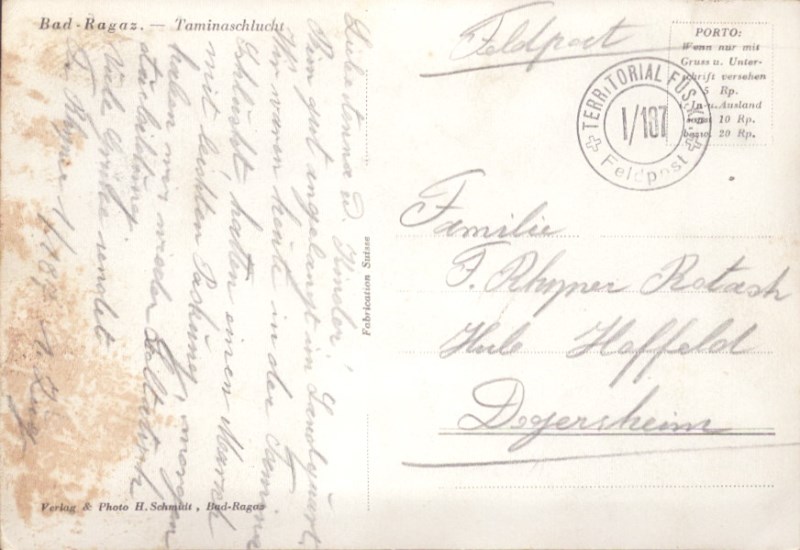 Bad-Ragaz. — Taminaschlucht
Feldpost
PORTO:
Wenn nur mit
Gruss u. Unter-
schrift versehen
5 Rp.
In- u. Ausland
sonst 10 Rp.
bezw. 20 Rp.
TERRITORIAL FÜS.KP.
I/187
Feldpost
Familie
F. Rhyner Rotach
Hub Hoffeld
Degersheim
Liebe Anna u. Kinder!
Bin gut angelangt in Landquart,
Wir waren heute in der Tamina
Schlucht, hatten einen Marsch
mit leichter Packung, morgen
haben wir wieder
Viele Grüsse sendet
F. Rhyner I/187
Fabrication Suisse
Verlag & Photo H. Schmidt, Bad-Ragaz